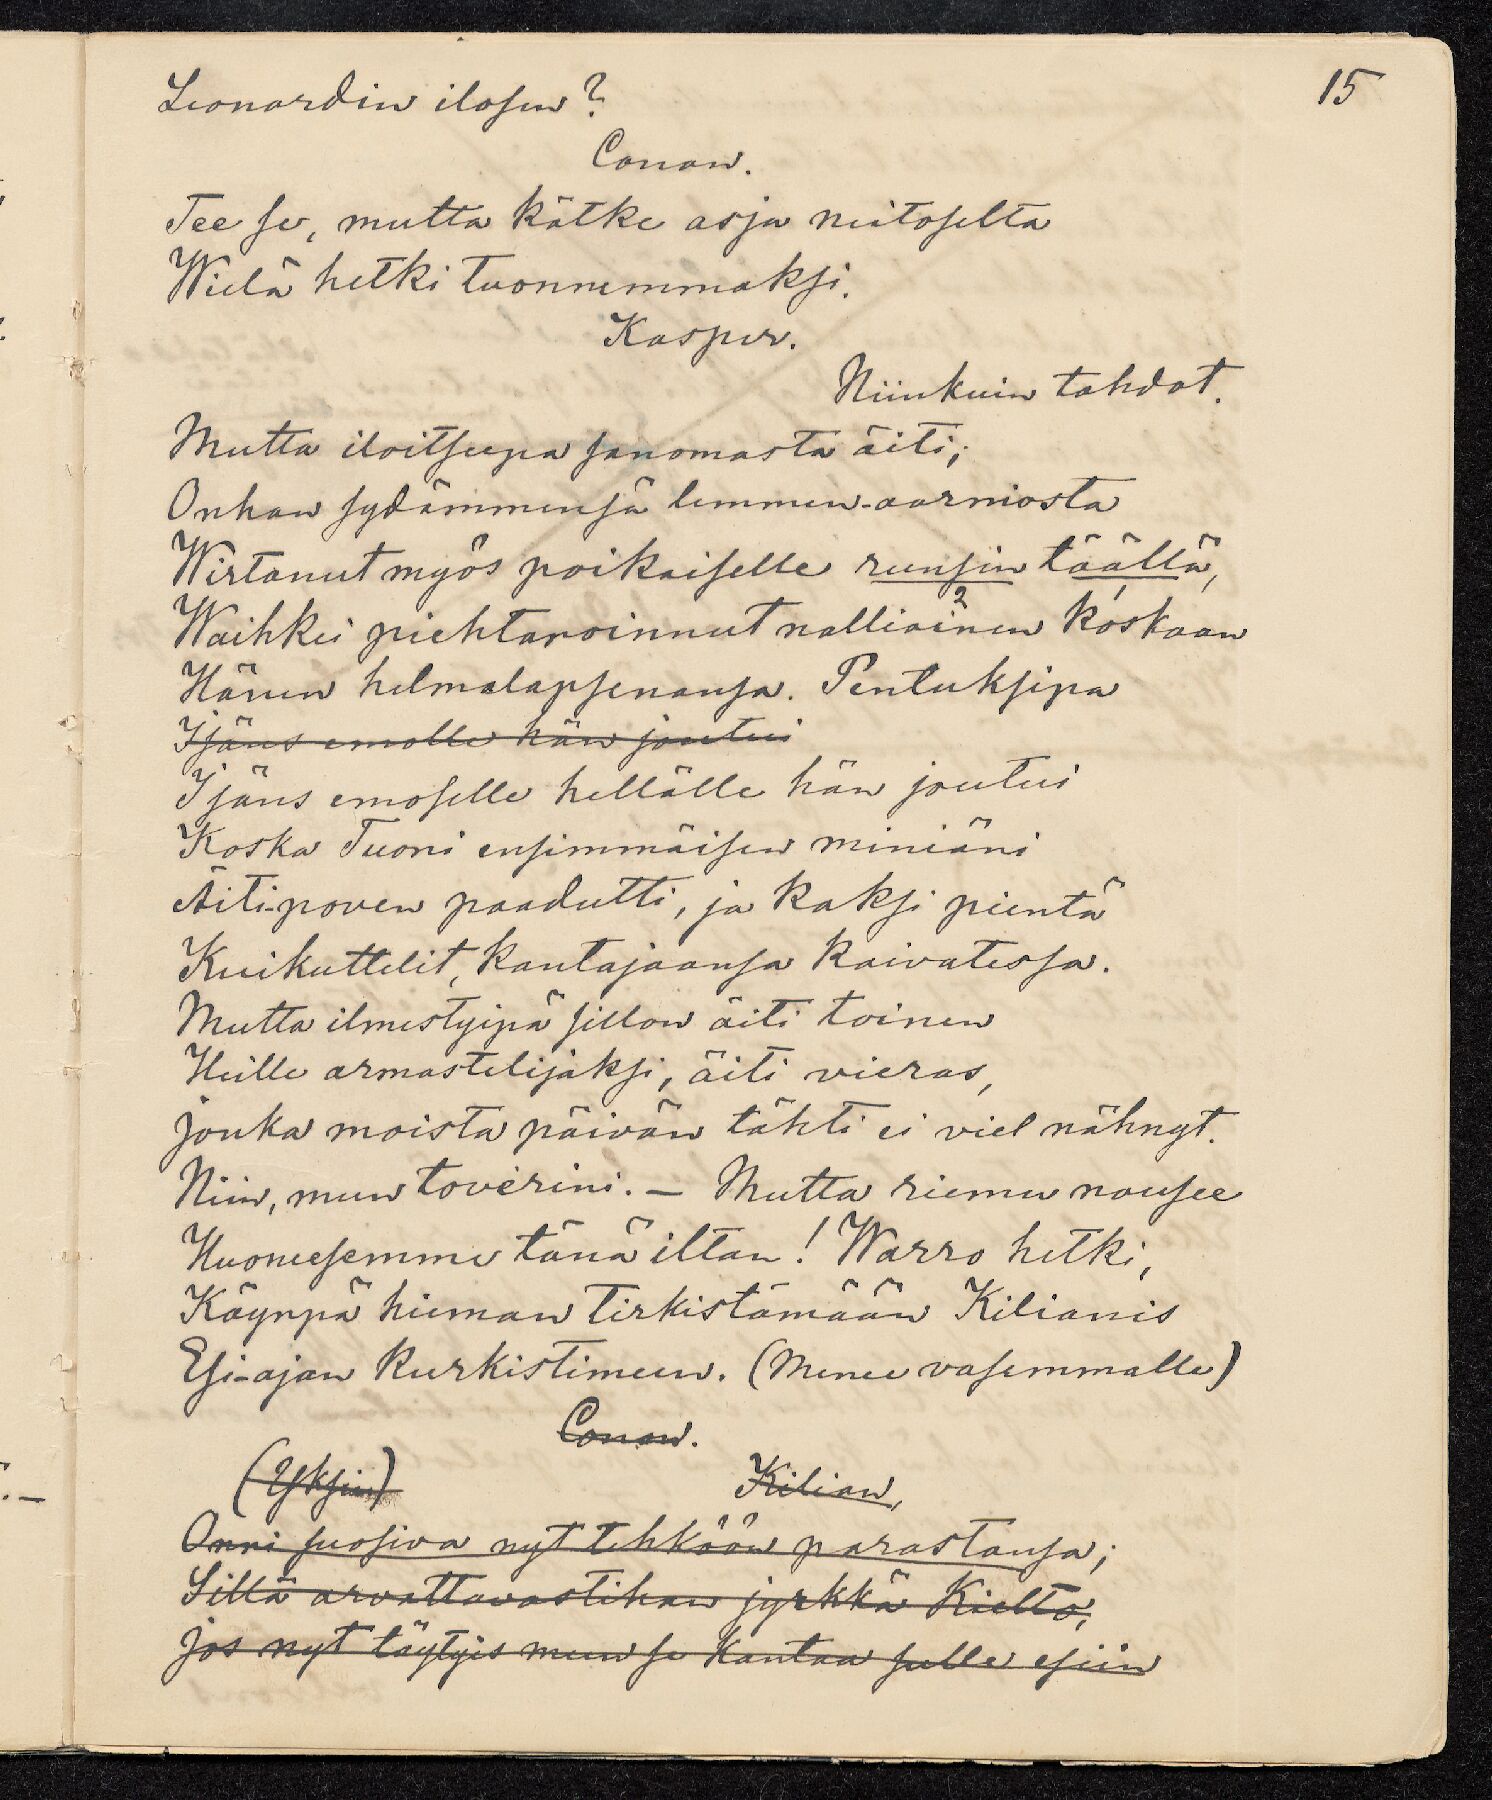 15
Leonardin ilosen?
Conon.
Tee se, mutta kätke asja neitoselta
Wielä hetki tuonnemmaksi.
Kasper.
Niinkuin tahdot.
Mutta iloitseepa sanomasta äiti;
Onhan sydämmensä lemmen-aarniosta
Wirtanut myös poikaiselle runsin täällä,
2 1
Waihkei piehtaroinnut nalliainen koskaan
Hänen helmalapsenansa. Pentuksipa
Isäns emolle hän joutui
Isäns emoselle hellälle hän joutui
Koska Tuoni ensimmäisen miniäni
Äiti-poven paadutti, ja kaksi pientä
Kuikuttelit, kantajaansa kaivatessa.
Mutta ilmestyipä sillon äiti toinen
Heille armastelijaksi, äiti vieras,
jonka moista päivän tähti ei viel nähnyt.
Niin, mun toverini. — Mutta riemu nousee
Huoneesemme tänä iltan! Warro hetki,
Käynpä hieman tirkistämään Kilianis
Esi-ajan kurkistimeen. (Menee vasemmalle)
Conon.
(Yksin) Kilian,
Onni suosiva nyt tehköön parastansa;
Sillä arvattavastihan jyrkkä kielto,
jos nyt täytyis mun se kantaa sulle esiin